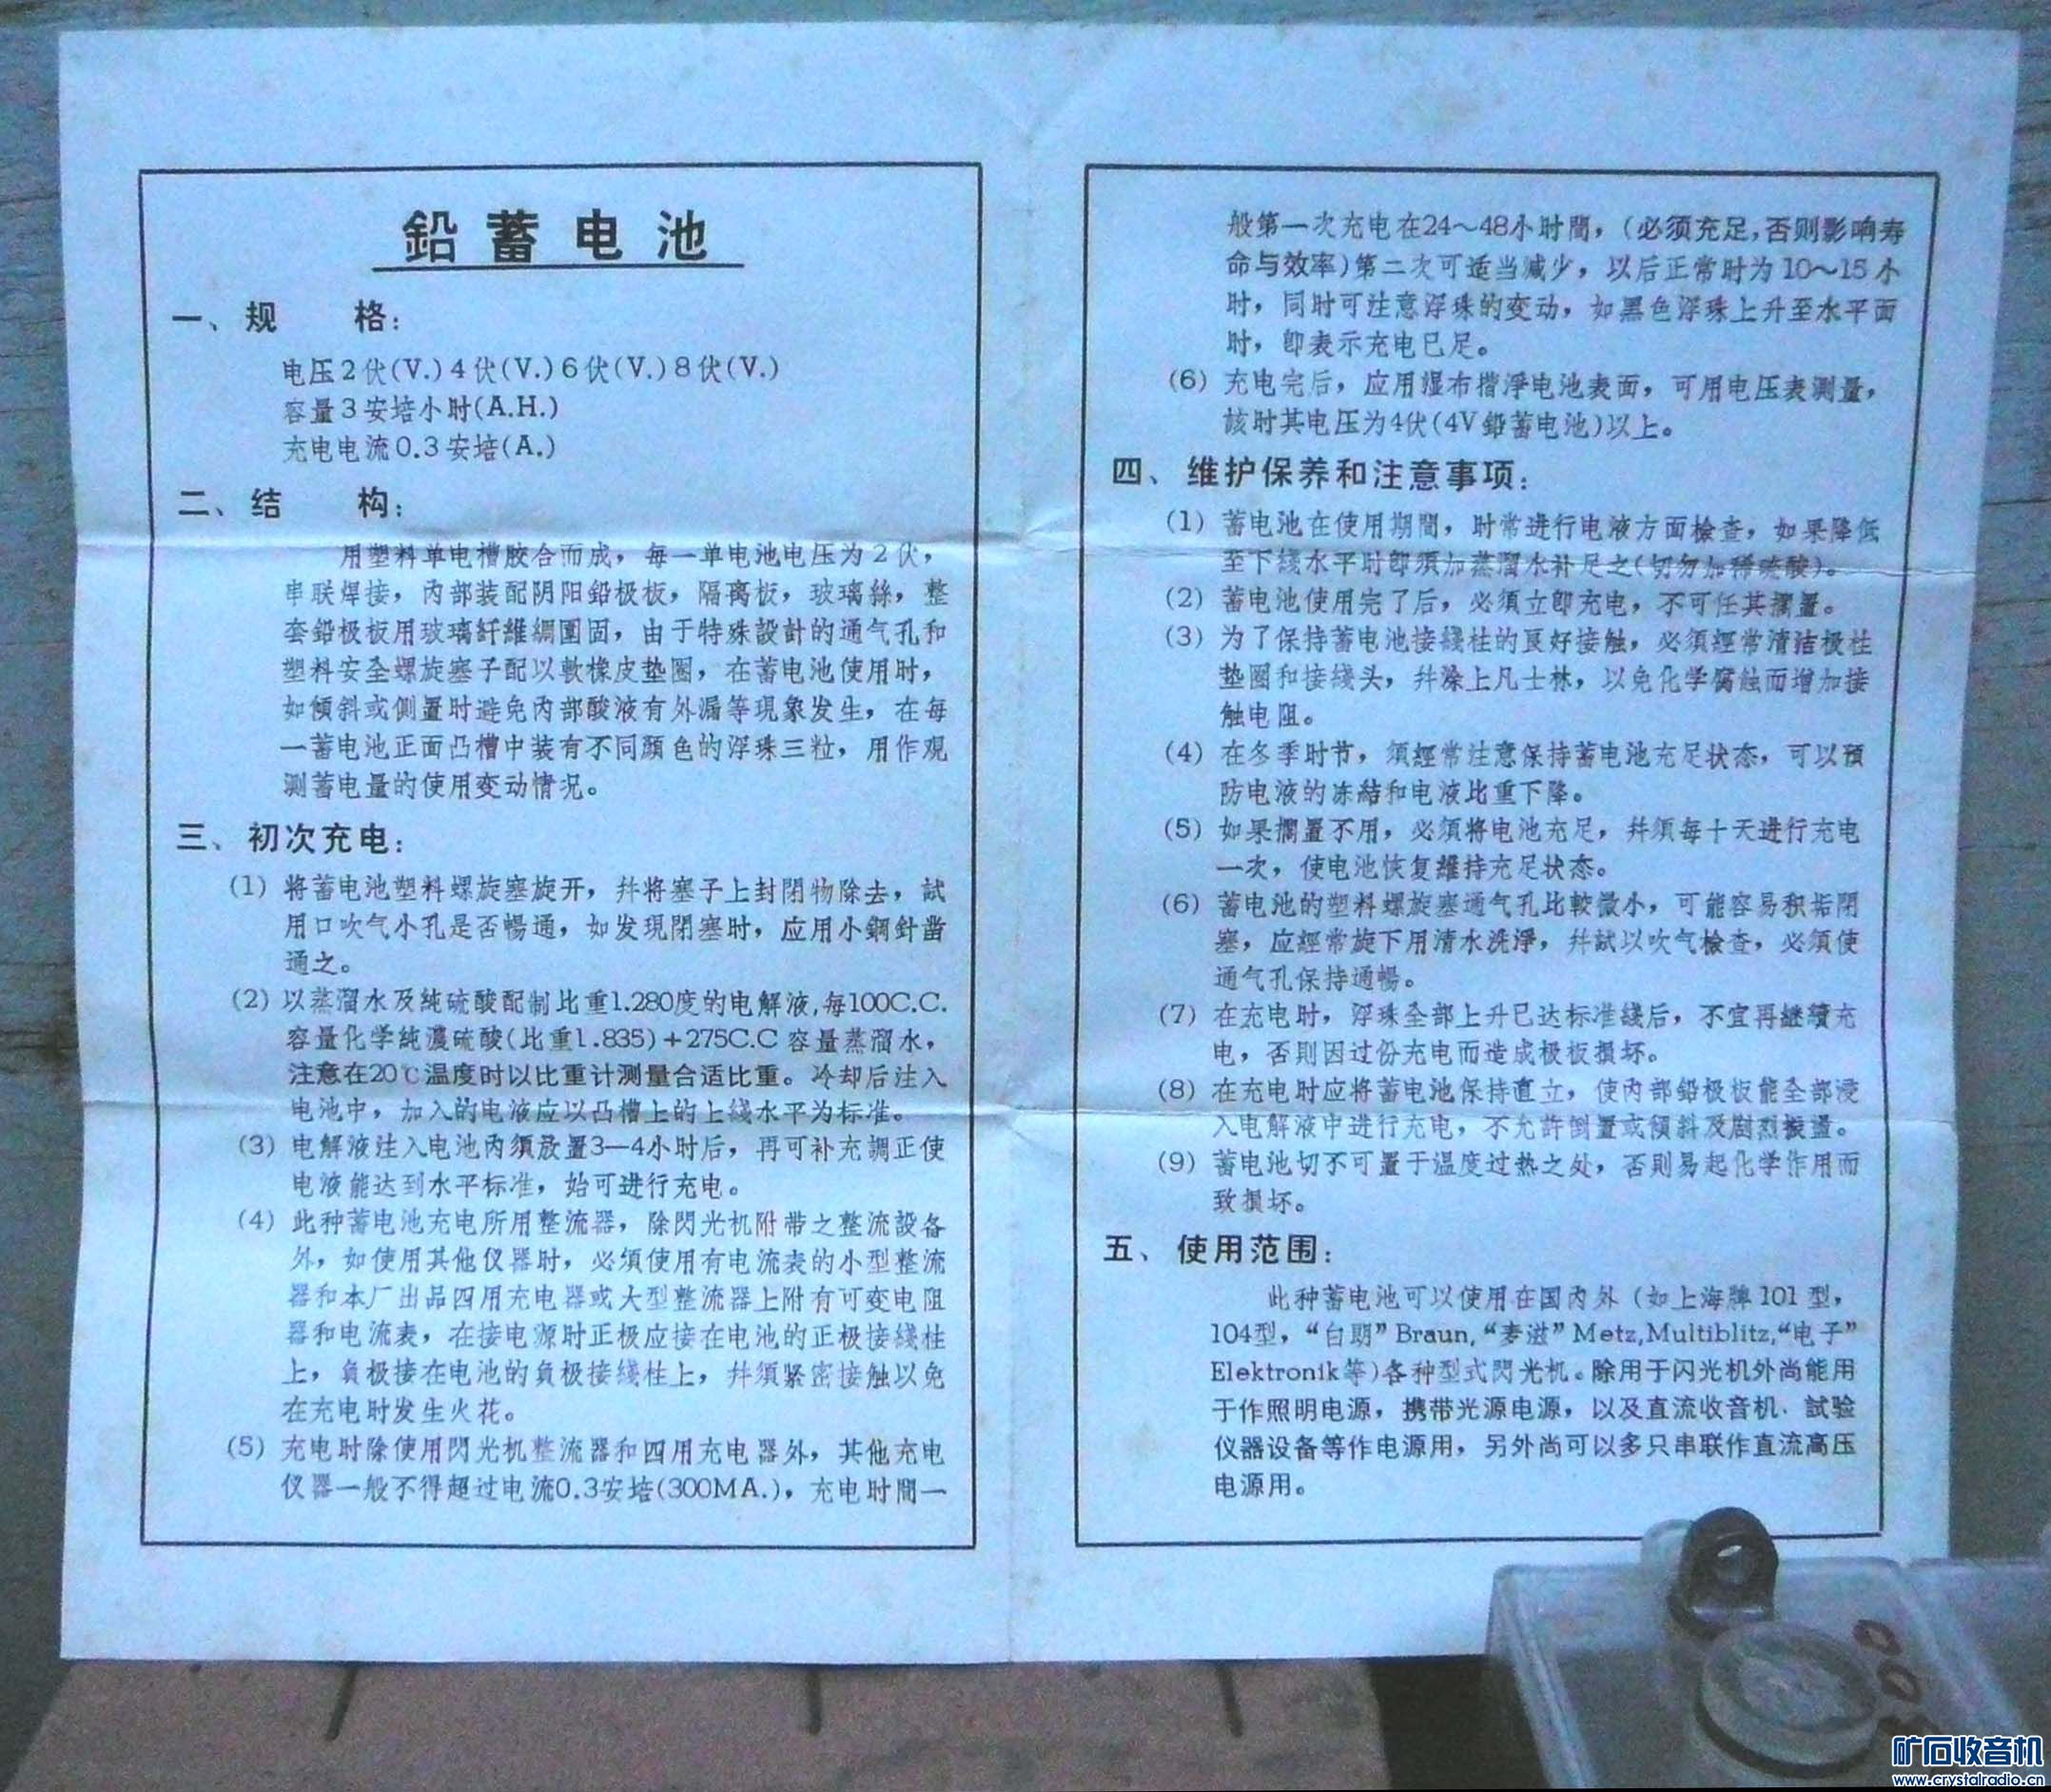 鉛蓄电池
一、规 格：
电压2伏(V.)4伏(V.)6伏(V.)8伏(V.)
容量3安培小时(A.H.)
充电电流0.3安培(A.)
二、结 构：
用塑料单电槽胶合而成，每一单电池电压为2伏，
串联焊接，內部装配阴阳鉛极板，隔离板，玻璃絲，整
套鉛极板用玻璃纤維綢圍固，由于特殊設計的通气孔和
塑料安全螺旋塞子配以軟橡皮垫圈，在蓄电池使用时，
如傾斜或側置时避免內部酸液有外漏等現象发生，在每
一蓄电池正面凸槽中装有不同顏色的浮珠三粒，用作观
测蓄电量的使用变动情况。
三、初次充电：
(1) 将蓄电池塑料螺旋塞旋开，幷将塞子上封閉物除去，試
用口吹气小孔是否暢通，如发現閉塞时，应用小鋼針凿
通之。
(2) 以蒸溜水及純硫酸配制比重1.280度的电解液,每100C.C.
容量化学純濃硫酸(比重1.835)+275C.C 容量蒸溜水，
注意在20℃温度时以比重计测量合适比重。冷却后注入
电池中，加入的电液应以凸槽上的上綫水平为标准。
(3) 电解液注入电池內須放置3—4小时后，再可补充調正使
电液能达到水平标准，始可进行充电。
(4) 此种蓄电池充电所用整流器，除閃光机附带之整流設备
外，如使用其他仪器时，必須使用有电流表的小型整流
器和本厂出品四用充电器或大型整流器上附有可变电阻
器和电流表，在接电源时正极应接在电池的正极接綫柱
上，負极接在电池的負极接綫柱上，幷須紧密接触以免
在充电时发生火花。
(5) 充电时除使用閃光机整流器和四用充电器外，其他充电
仪器一般不得超过电流0.3安培(300MA.)，充电时間一
般第一次充电在24～48小时間，(必须充足,否则影响寿
命与效率)第二次可适当减少，以后正常时为10～15小
时，同时可注意浮珠的变动，如黑色浮珠上升至水平面
时，卽表示充电已足。
(6) 充电完后，应用湿布揩淨电池表面，可用电压表测量，
該时其电压为4伏(4V鉛蓄电池)以上。
四、维护保养和注意事项：
(1) 蓄电池在使用期間，时常进行电液方面檢查，如果降低
至下綫水平时卽須加蒸溜水补足之(切勿加稀硫酸)。
(2) 蓄电池使用完了后，必須立卽充电，不可任其擱置。
(3) 为了保持蓄电池接綫柱的良好接触，必須經常清洁极柱
垫圈和接綫头，幷涂上凡士林，以免化学腐蝕而增加接
触电阻。
(4) 在冬季时节，須經常注意保持蓄电池充足状态，可以預
防电液的冻結和电液比重下降。
(5) 如果擱置不用，必須将电池充足，幷須每十天进行充电
一次，使电池恢复維持充足状态。
(6) 蓄电池的塑料螺旋塞通气孔比較微小，可能容易积垢閉
塞，应經常旋下用清水洗淨，幷試以吹气檢查，必須使
通气孔保持通暢。
(7) 在充电时，浮珠全部上升已达标准綫后，不宜再継續充
电，否則因过份充电而造成极板損坏。
(8) 在充电时应将蓄电池保持直立，使內部鉛极板能全部浸
入电解液中进行充电，不允許倒置或傾斜及剧烈振盪。
(9) 蓄电池切不可置于温度过热之处，否則易起化学作用而
致損坏。
五、使用范围：
此种蓄电池可以使用在国內外（如上海牌101型，
104型，“白朗”Braun,“麦滋”Metz,Multiblitz,“电子”
Elektronik等)各种型式閃光机。除用于闪光机外尚能用
于作照明电源，携带光源电源，以及直流收音机、試验
仪器设备等作电源用，另外尚可以多只串联作直流高压
电源用。
矿石收音机
www.crystalradio.cn